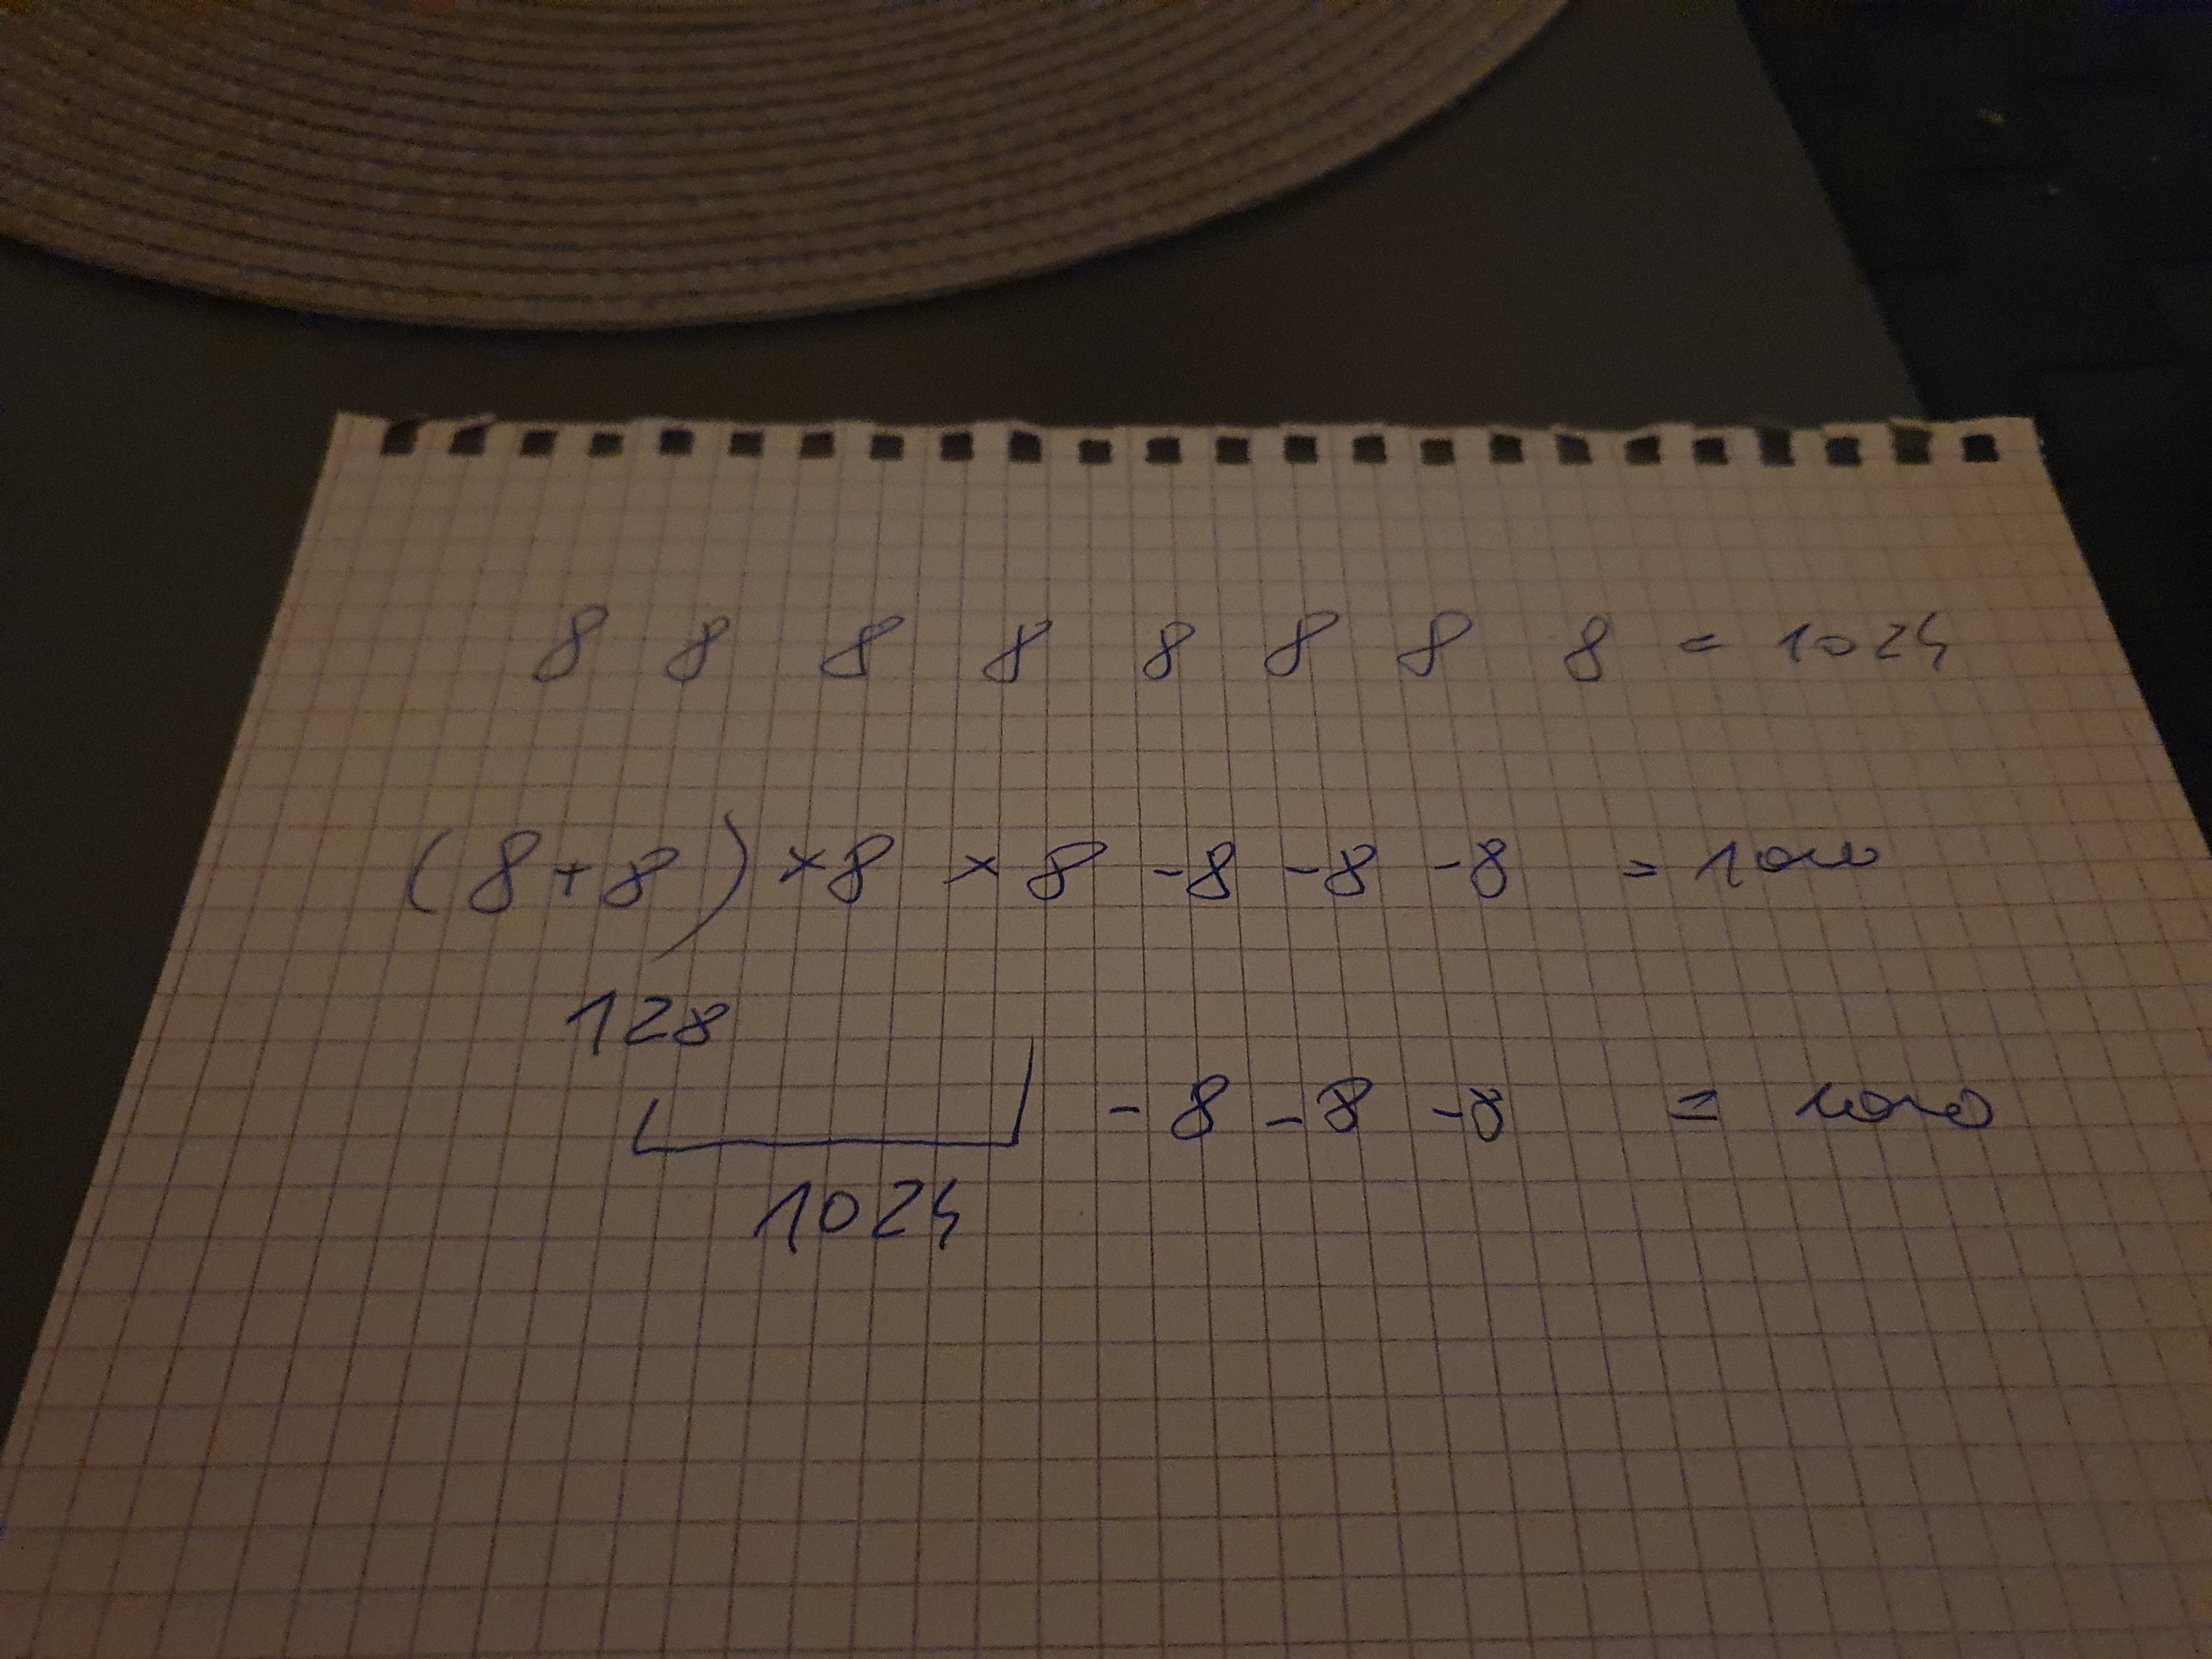 8 8 8 8 8 8 8 8 = 1024
(8+8) × 8 × 8 - 8 - 8 - 8 = 1000
128
- 8 - 8 - 8 = 1000
1024